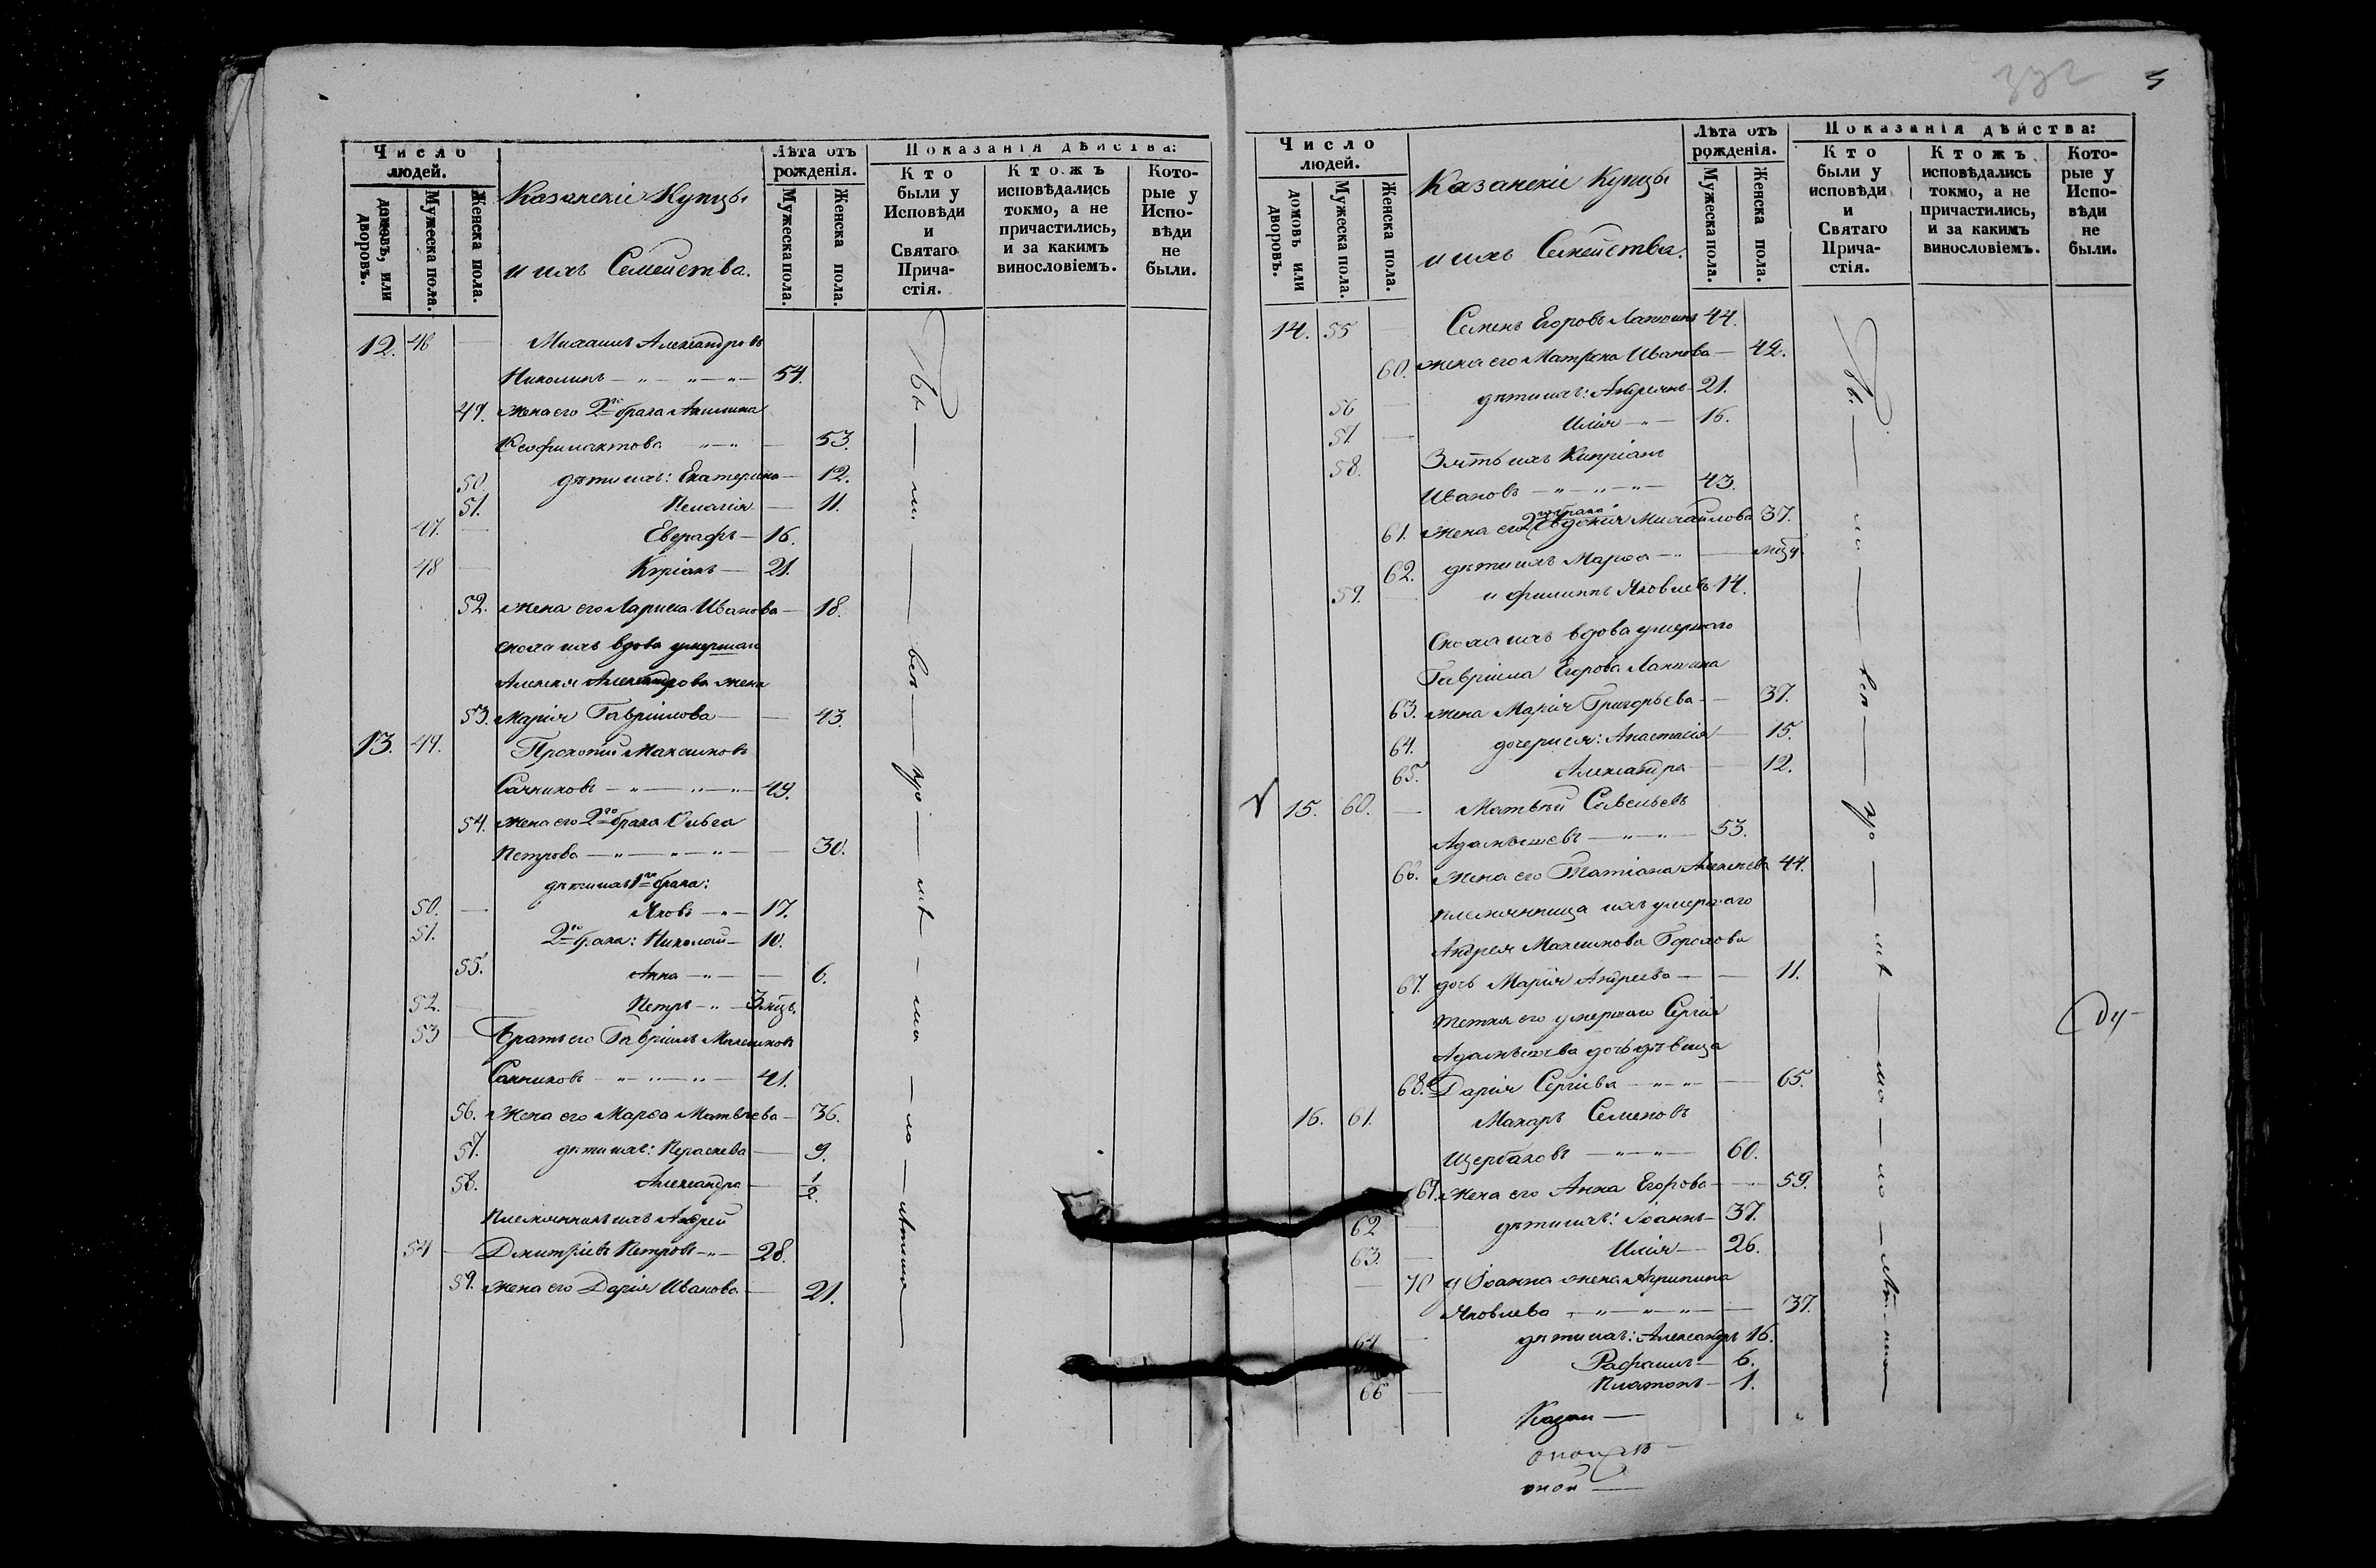 Число людей.
домовъ, или дворовъ.
Мужеска пола.
Женска пола.
Казанскіе Купцы
и ихъ Семейства.
Лѣта отъ рожденія.
Мужеска пола.
Женска пола.
Показанія дѣйства:
Кто были у Исповѣди и Святаго Причастія.
Ктожъ исповѣдались токмо, а не причастились, и за какимъ винословіемъ.
Которые у Исповѣди не были.
12. 46 — Михаилъ Александровъ
54.
49. жена его 2го брака Акилина
Феофилактова — 53.
50 дѣти ихъ: Екатерина — 12.
51. Пелагія — 11.
47. — Еверафъ — 16.
48 — Киріакъ — 21.
52. жена его Лариса Иванова — 18.
сноха ихъ вдова умершаго
Алексея Александрова жена
53. Марія Гавріилова — 43
13. 49. Прокопій Максимовъ
Сачниковъ — 49.
54. жена его 2го брака Ольга
Петрова — 30.
дѣти ихъ 1го брака:
50. — Яковъ — 17.
51. 2го брака: Николай — 10.
55. Анна — 6.
52. — Петръ — 3 мѣц.
53 — Братъ его Гавріилъ Максимовъ
Сачниковъ — 41.
56. Жена его Марѳа Матвѣева — 36.
57. дѣти ихъ: Параскева — 9.
58. Александра — 1/2.
Племянникъ ихъ Андрей
54 — Дмитріевъ Петровъ — 28.
59. жена его Дарія Иванова — 21.
5
Число людей.
домовъ или дворовъ.
Мужеска пола.
Женска пола.
Казанскіе Купцы
и ихъ Семейства.
Лѣта отъ рожденія.
Мужеска пола.
Женска пола.
Показанія дѣйства:
Кто были у исповѣди и Святаго Причастія.
Ктожъ исповѣдались токмо, а не причастились, и за какимъ винословіемъ.
Которые у Исповѣди не были.
14. 55 — Семенъ Егоровъ Лаптинъ 44.
60. жена его Матрена Иванова — 42.
56 — дѣти ихъ: Андреянъ — 21.
57. — Илія — 16.
58. Зять ихъ Кипріанъ
Ивановъ — 43.
61. жена его 2го брака Евдокія Михайлова 37.
62. дѣти ихъ Марѳа —
59. — и Филиппъ Яковлевъ 14.
Сноха ихъ вдова умершаго
Гавріила Егорова Лаптина
63. жена Марія Григорьева — 37.
64. дочери ея: Анастасія — 15.
65. Александра — 12.
15. 60. — Матвѣй Савельевъ
53.
66. Жена его Татіана Алексѣева 44.
племянница ихъ умершаго
Андрея Максимова Горохова
67. дочь Марія Андреева — 11.
тетка его умершаго Сергія
дочь дѣвица
68. Дарія Сергіева — 65.
16. 61. Макаръ Семеновъ
Щербаковъ — 60.
69. жена его Анна Егорова — 59.
62 — дѣти ихъ: Іоаннъ — 37.
63. — Илія — 26.
— 70 у Іоанна жена Агрипина
Яковлева — 37.
64 — дѣти ихъ: Александръ 16.
Рафаилъ — 6.
66 — Платонъ — 1.